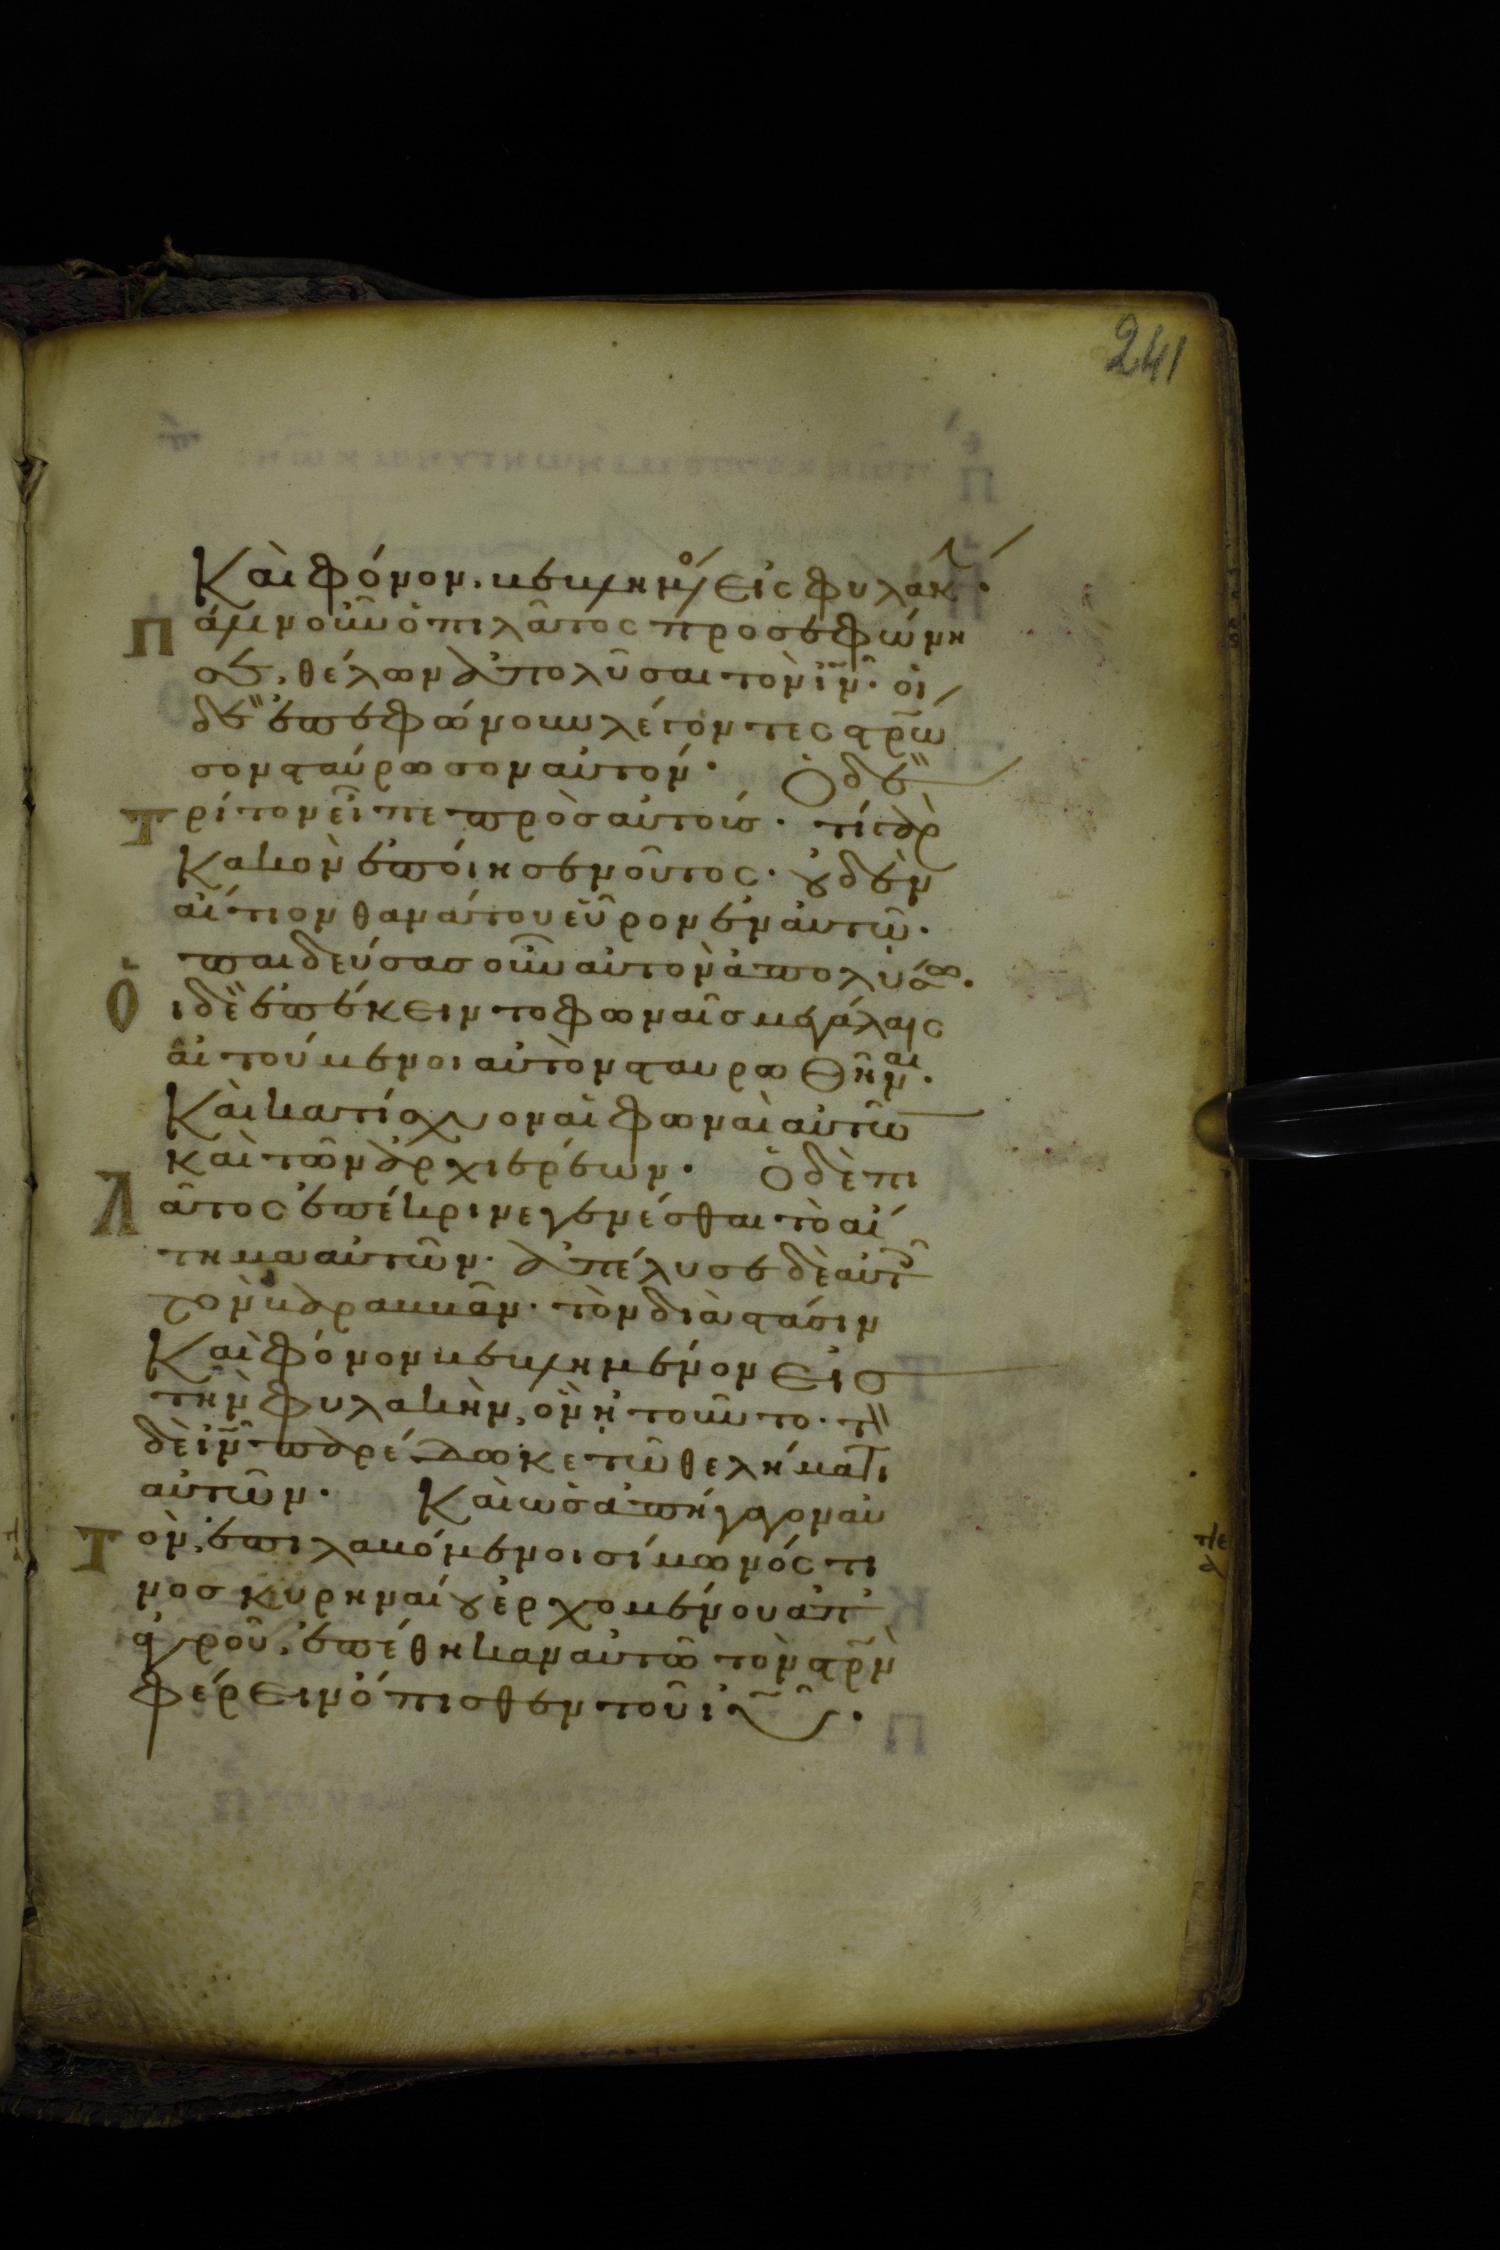 241
Καὶ φόνον. βεβλημ(έν)ο(ν) εἰς φυλακ(ήν).
Πάλιν οὖν ὁ πιλᾶτος προσεφώνη
σε, θέλων ἀπολῦσαι τὸν ἰν̅. οἱ
δὲ ἐπεφώνουν λέγοντες στ̅ρω
σον σταύρωσον αὐτόν. Ὁ δὲ
Τρίτον εἶπε πρὸς αὐτούς. τί γὰρ
κακὸν ἐποίησεν οὗτος. οὐδὲν
αἴτιον θανάτου εὗρον ἐν αὐτῶ.
παιδεύσας οὖν αὐτὸν ἀπολύσω.
Ὁι δὲ ἐπέκειντο φωναῖς μεγάλαις
αἰτούμενοι αὐτὸν σταυρωθῆναι.
Καὶ κατίσχυον αἱ φωναὶ αὐτῶ
καὶ τῶν ἀρχιερέων. Ὁ δὲ πι
Λᾶτος ἐπέκρινε γενέσθαι τὸ αἴ
τημα αὐτῶν. ἀπέλυσε δὲ αὐτοῖς
τὸν βαραββᾶν. τὸν διὰ στάσιν
Καὶ φόνον βεβλημένον εἰς
τὴν φυλακὴν, ὃν ἠτοῦντο. τὸν
δὲ ἰν̅ παρέδωκε τῶ θελήματι
αὐτῶν. Καὶ ὡς ἀπήγαγον αὐ
Τὸν, ἐπιλαβόμενοι σίμωνός τι
νος κυρηναίου ἐρχομένου ἀπ'
ἀγροῦ, ἐπέθηκαν αὐτῶ τὸν στ̅ρν
φέρειν ὄπισθεν τοῦ ιυ̅.